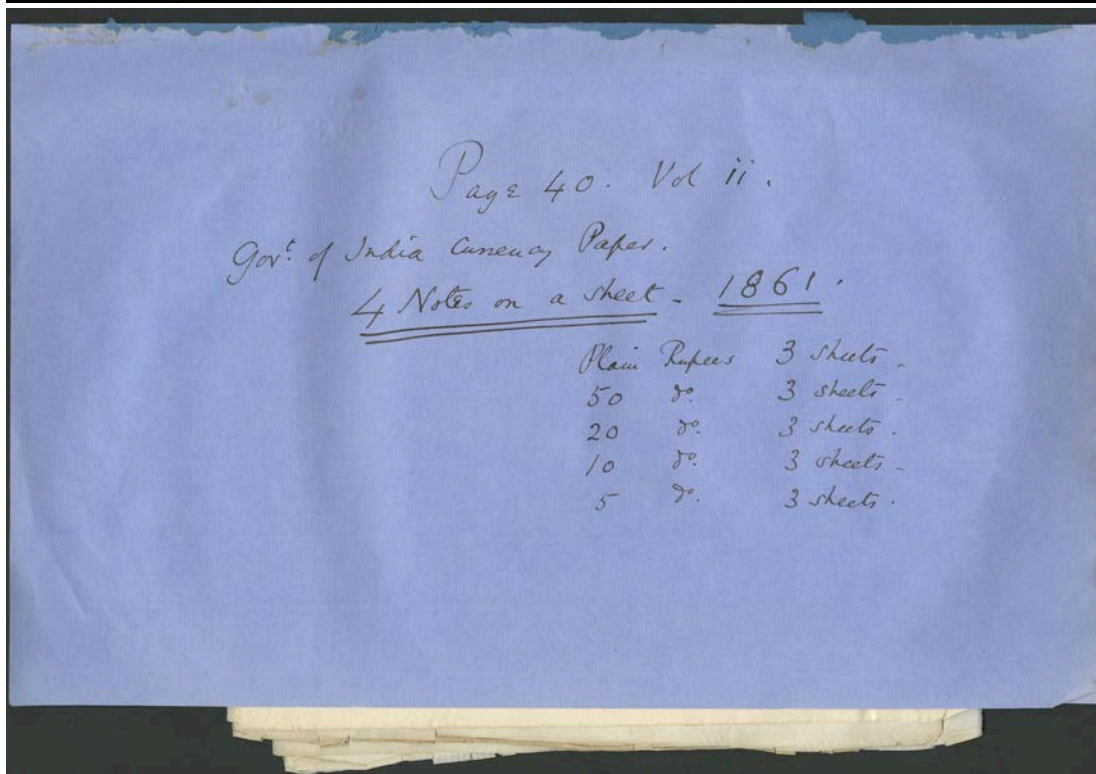 Page 40. Vol ii.
Govt. of India Currency Paper.
4 Notes on a sheet - 1861.
Plain Rupees 3 sheets -
50 do. 3 sheets -
20 do. 3 sheets.
10 do. 3 sheets -
5 do. 3 sheets.